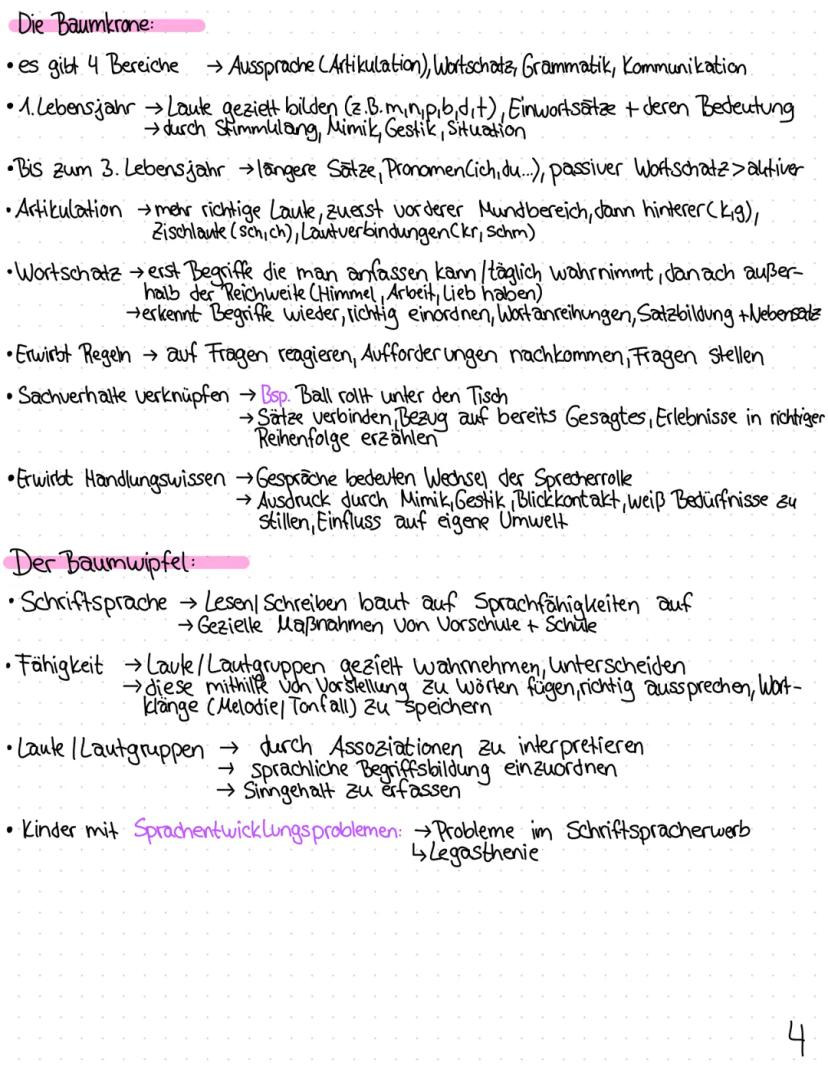 Die Baumkrone:
• es gibt 4 Bereiche → Aussprache (Artikulation), Wortschatz, Grammatik, Kommunikation
• 1. Lebensjahr → Laute gezielt bilden (z.B. m, n, p, b, d, t), Einwortsätze + deren Bedeutung
→ durch Stimmklang, Mimik, Gestik, Situation
• Bis zum 3. Lebensjahr → längere Sätze, Pronomen (ich, du...), passiver Wortschatz > aktiver
• Artikulation → mehr richtige Laute, zuerst vorderer Mundbereich, dann hinterer (k, g),
Zischlaute (sch, ch), Lautverbindungen (kr, schm)
• Wortschatz → erst Begriffe die man anfassen kann / täglich wahrnimmt, danach außer-
halb der Reichweite (Himmel, Arbeit, Lieb haben)
→ erkennt Begriffe wieder, richtig einordnen, Wortanreihungen, Satzbildung + Nebensatz
• Erwirbt Regeln → auf Fragen reagieren, Aufforderungen nachkommen, Fragen stellen
• Sachverhalte verknüpfen → Bsp. Ball rollt unter den Tisch
→ Sätze verbinden, Bezug auf bereits Gesagtes, Erlebnisse in richtiger
Reihenfolge erzählen
• Erwirbt Handlungswissen → Gespräche bedeuten Wechsel der Sprecherrolle
→ Ausdruck durch Mimik, Gestik, Blickkontakt, weiß Bedürfnisse zu
stillen, Einfluss auf eigene Umwelt
Der Baumwipfel:
• Schriftsprache → Lesen/Schreiben baut auf Sprachfähigkeiten auf
→ Gezielle Maßnahmen von Vorschule + Schule
• Fähigkeit → Laute/Lautgruppen gezielt wahrnehmen, unterscheiden
→ diese mithilfe von Vorstellung zu Wörten fügen, richtig aussprechen, Wort-
klänge (Melodie/Tonfall) zu speichern
• Laute / Lautgruppen → durch Assoziationen zu interpretieren
→ sprachliche Begriffsbildung einzuordnen
→ Sinngehalt zu erfassen
• Kinder mit Sprachentwicklungsproblemen: → Probleme im Schriftspracherwerb
↳ Legasthenie
4